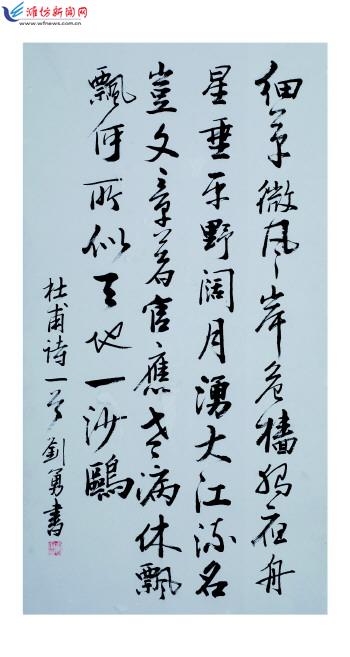 潍坊新闻网
www.wfnews.com.cn
细草微风岸危檣独夜舟
星垂平野阔月湧大江流名
豈文章著官應老病休飄
飄何所似天地一沙鷗
杜甫诗一首 劉勇書